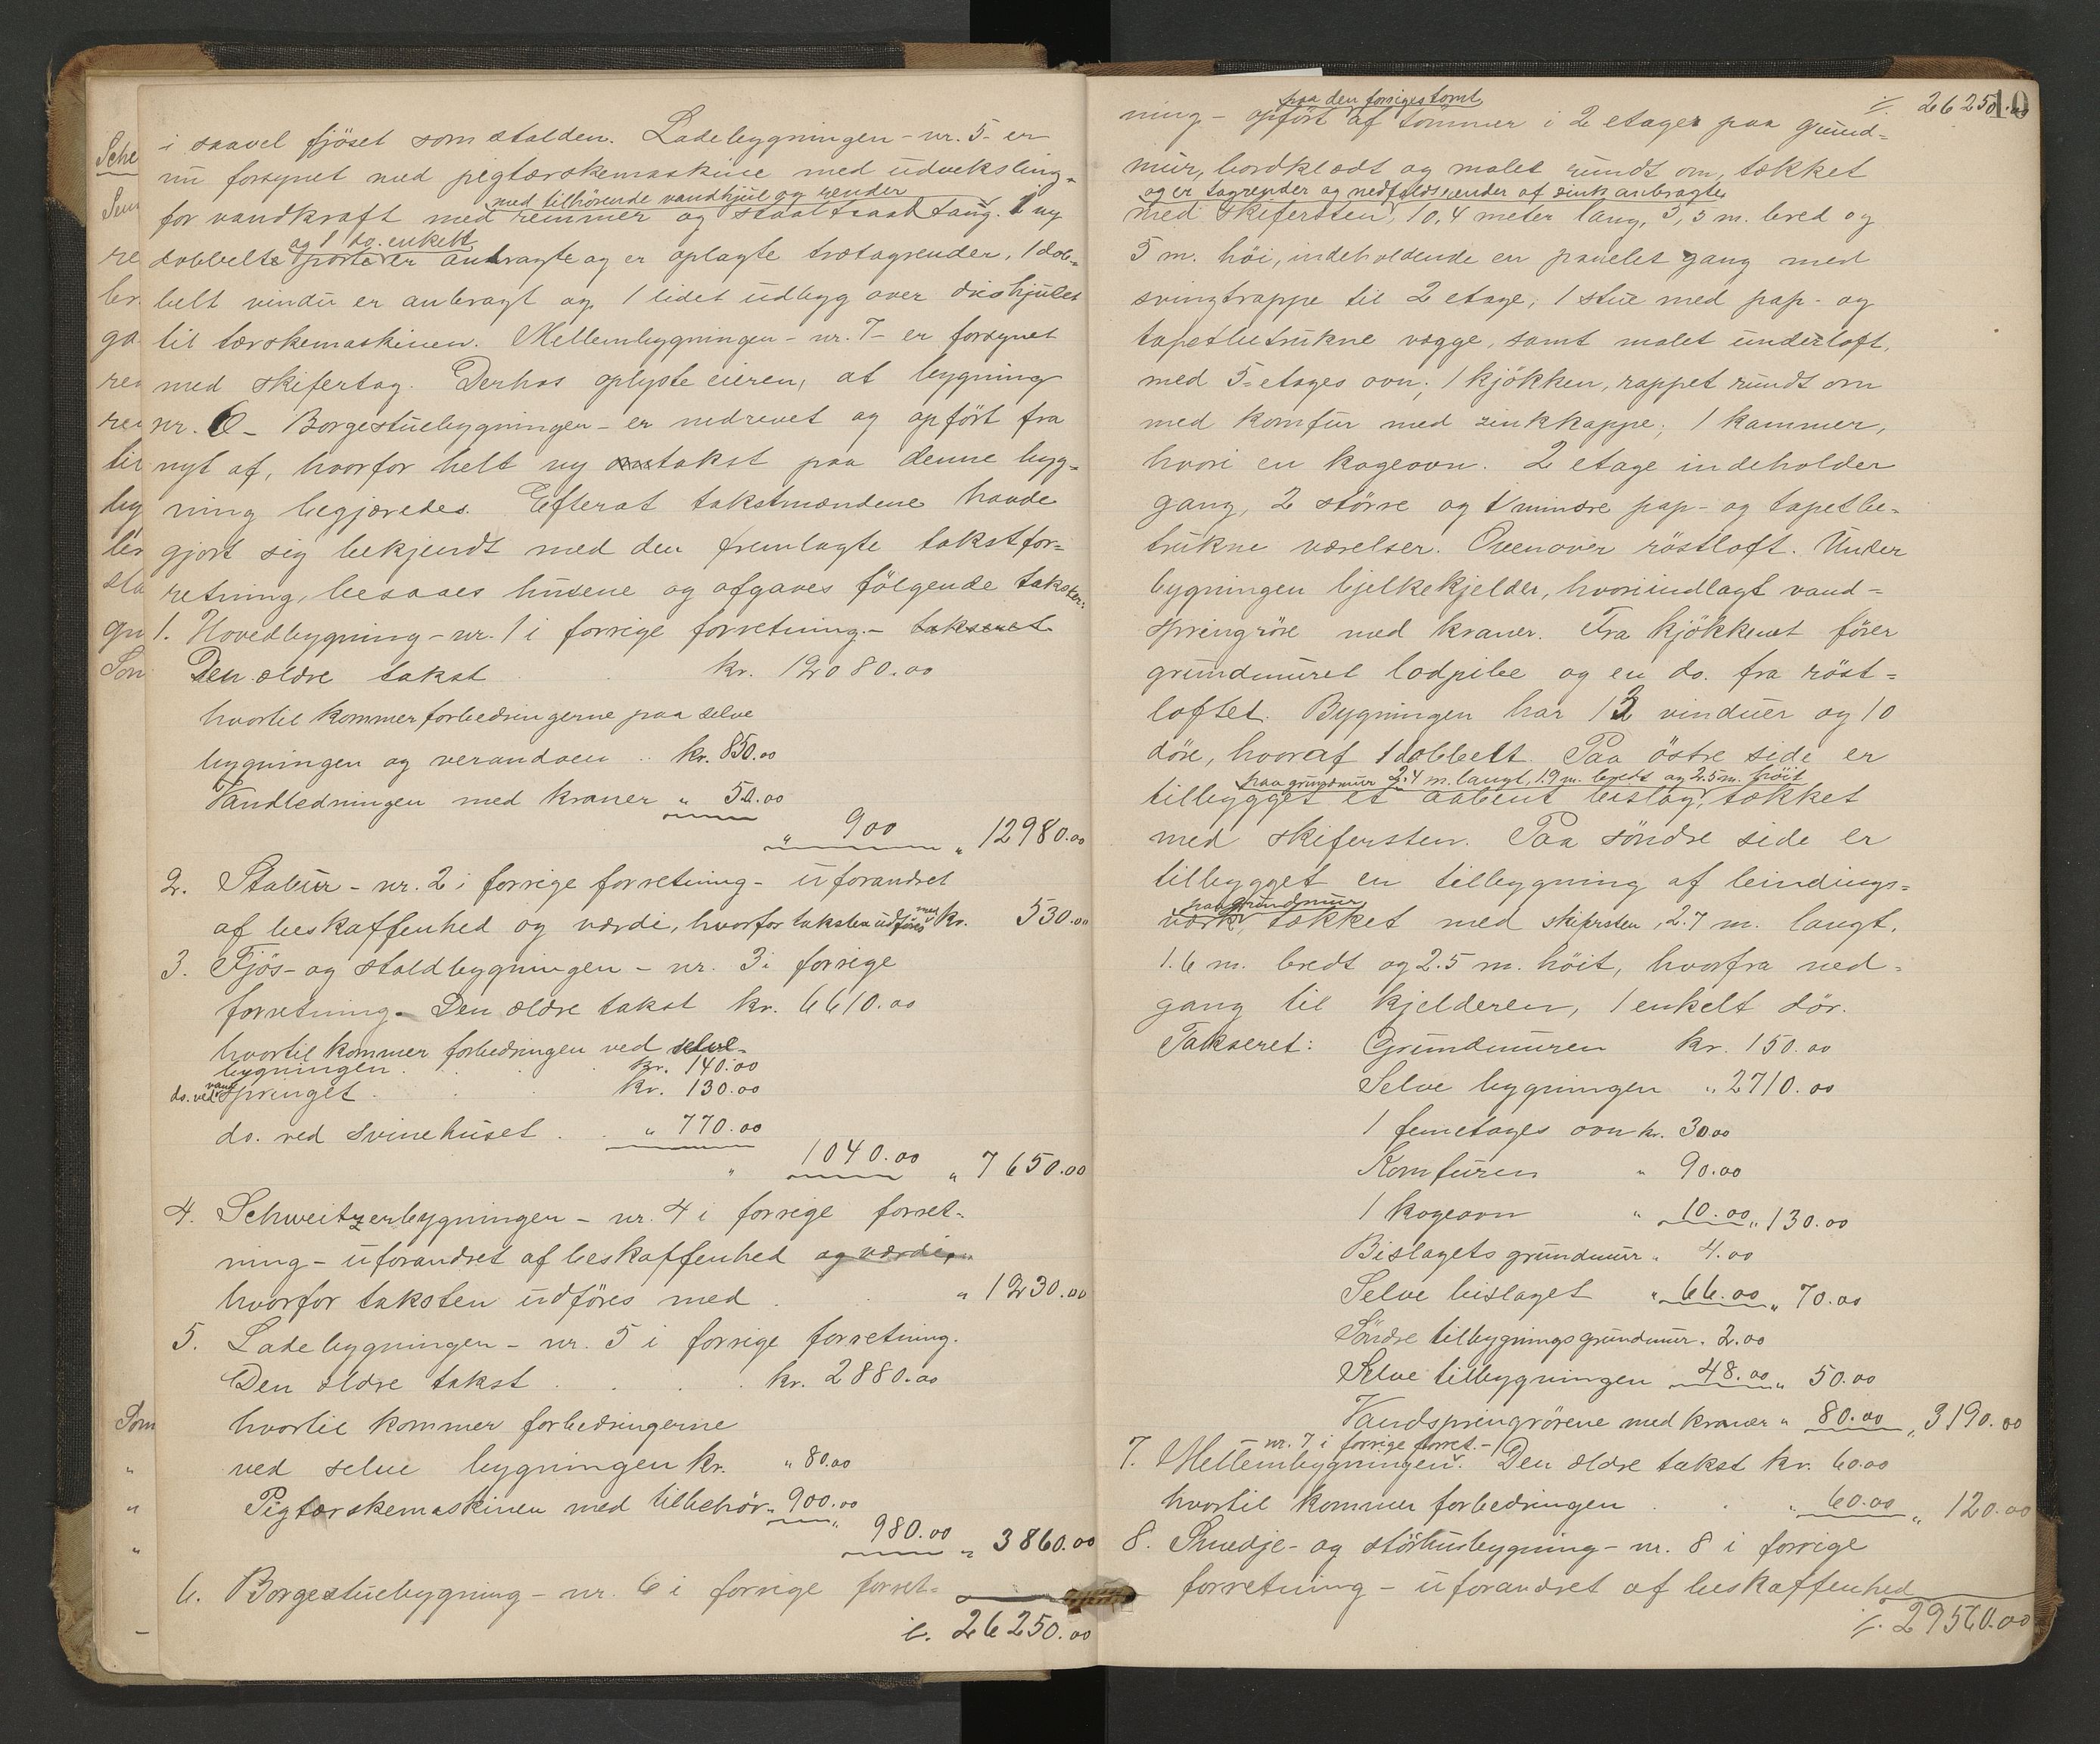 i saavel fjöset som stalden. Ladebygningen - nr. 5 - er
nu forsynet med pigtærskemaskine med udveksling
med tilhörende vandhjul og render
for vandkraft med remmer og staaltraadtaug. 1 ny
og 1 do. enkelt
dobbelte porte er anbragte og er oplagte trætagrender, 1 dob-
belt vindu er anbragt og 1 lidet udbyg over drivhjulet
til tærskemaskinen. Mellembygningen - nr. 7 - er forsynet
med skifertag. Derhos oplyste eieren, at bygning
nr. 6 - Borgestuebygningen - er nedrevet og opfört fra
nyt af, hvorfor helt ny takst paa denne byg-
ning begjæredes. Efterat takstmændene havde
gjort sig bekjendt med den fremlagte takstfor-
retning, besaaes husene og afgaves fölgende takster:
1. Hovedbygning - nr. 1 i forrige forretning - takseret
Den ældre takst kr. 12080.00
hvortil kommer forbedringerne paa selve
bygningen og verandaen .. kr. 850.00
Vandledningen med kraner " 50.00
" 900 " 12980.00
2. Stabur - nr. 2 i forrige forretning - uforandret
af beskaffenhed og værdi, hvorfor taksten udföres med kr. 530.00
3. Fjös- og staldbygningen - nr. 3 i forrige
forretning. Den ældre takst kr. 6610.00
hvortil kommer forbedringen ved selve
bygningen . . . kr. 140.00
do. ved vandspringet . . kr. 130.00
do. ved svinehuset . . " 770.00
" 1040.00 " 7650.00
4. Schweitzerbygningen - nr. 4 i forrige forret-
ning - uforandret af beskaffenhed og værdi,
hvorfor taksten udföres med . . " 1230.00
5. Ladebygningen - nr. 5 i forrige forretning.
Den ældre takst . . . . kr. 2880.00
hvortil kommer forbedringerne
ved selve bygningen kr. " 80.00
Pigtærskemaskinen med tilbehör " 900.00
" 980.00 " 3860.00
6. Borgestuebygning - nr. 6 i forrige forret-
26250.00
10
26250.00
paa den forriges tomt
ning - opfört af tömmer i 2 etager paa grund-
mur, bordklædt og malet rundt om, tækket
og er tagrender og nedfaldsrender af zink anbragte
med skifersten, 10,4 meter lang, 5,5 m. bred og
5 m. höi, indeholdende en panelet gang med
svingtrappe til 2 etage; 1 stue med pap- og
tapetbetrukne vægge, samt malet underloft,
med 5-etages ovn; 1 kjökken, rappet rundt om
med komfur med zinkkappe; 1 kammer,
hvori en kogeovn. 2 etage indeholder
gang, 2 större og 1 mindre pap- og tapetbe-
trukne værelser. Ovenover röstloft. Under
bygningen bjelkekjelder, hvori indlagt vand-
springröre med kraner. Fra kjökkenet förer
grundmuret lodpibe og en do. fra röst-
loftet. Bygningen har 13 vinduer og 10
döre, hvoraf 1 dobbelt. Paa östre side er
paa grundmur 2.4 m. langt, 1.9 m. bredt og 2.5 m. höit
tilbygget et aabent bislag, tækket
med skifersten. Paa söndre side er
tilbygget en tilbygning af bindings-
paa grundmur
værk, tækket med skifersten, 2.7 m. langt,
1.6 m. bredt og 2.5 m. höit, hvorfra ned-
gang til kjelderen, 1 enkelt dör.
Takseret: Grundmuren kr. 150.00
Selve bygningen " 2710.00
1 femetages ovn kr. 30.00
Komfuren " 90.00
1 kogeovn " 10.00 " 130.00
Bislagets grundmur " 4.00
Selve bislaget " 66.00 " 70.00
Söndre tilbygnings grundmur . 2.00
Selve tilbygningen 48.00 " 50.00
Vandspringrörene med kraner " 80.00 " 3190.00
- nr. 7 i forrige forret. -
7. Mellembygningen. Den ældre takst kr. 60.00
hvortil kommer forbedringen . . " 60.00 " 120.00
8. Smedje- og störhusbygning - nr. 8 i forrige
forretning - uforandret af beskaffenhed
29560.00